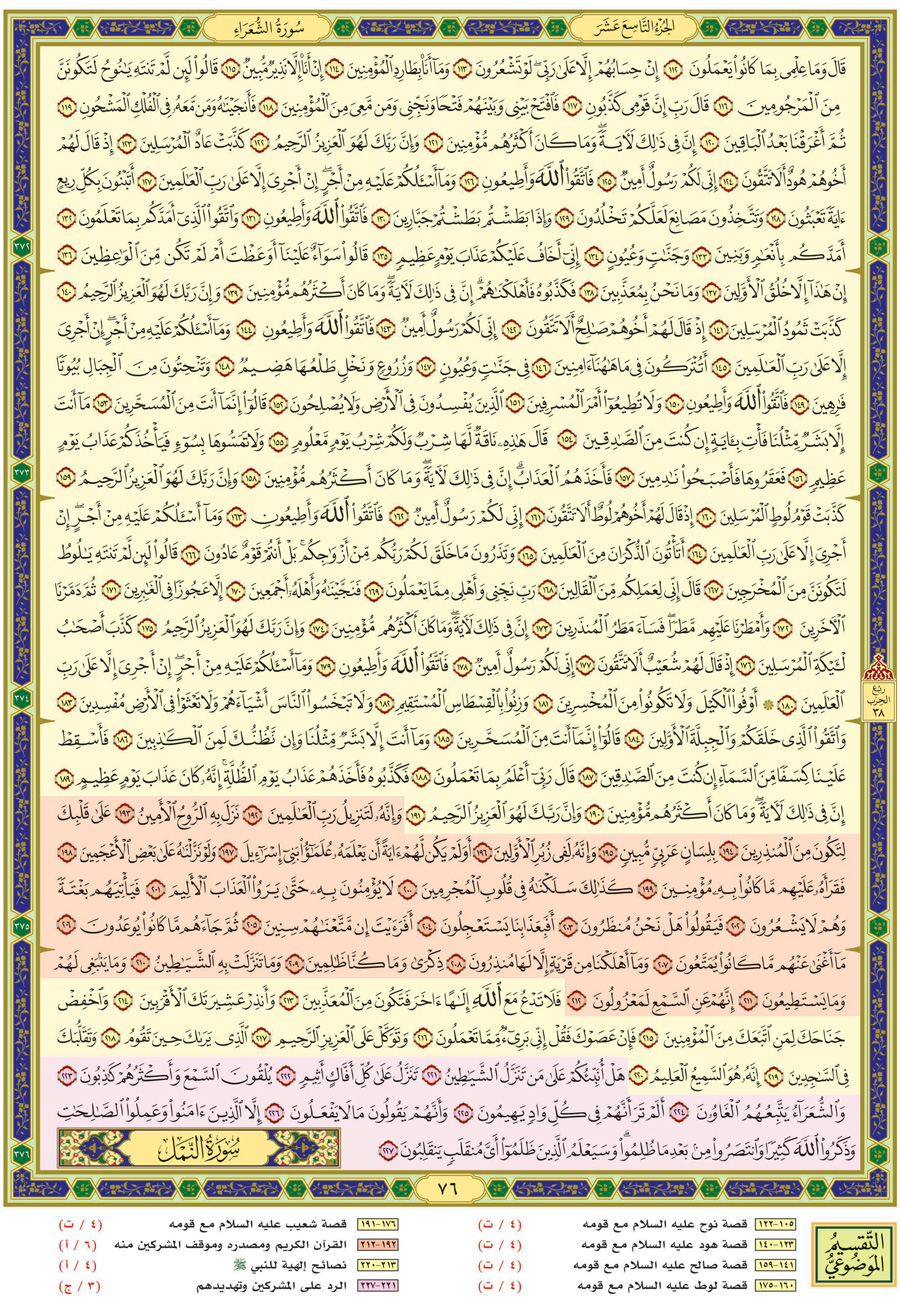 الجزء التاسع عشر
سورة الشعراء
قَالَ وَمَا عِلْمِى بِمَا كَانُوا۟ يَعْمَلُونَ ١١٢ إِنْ حِسَابُهُمْ إِلَّا عَلَىٰ رَبِّى لَوْ تَشْعُرُونَ ١١٣ وَمَآ أَنَا۠ بِطَارِدِ ٱلْمُؤْمِنِينَ ١١٤ إِنْ أَنَا۠ إِلَّا نَذِيرٌ مُّبِينٌ ١١٥ قَالُوا۟ لَئِن لَّمْ تَنتَهِ يَـٰنُوحُ لَتَكُونَنَّ
مِنَ ٱلْمَرْجُومِينَ ١١٦ قَالَ رَبِّ إِنَّ قَوْمِى كَذَّبُونِ ١١٧ فَٱفْتَحْ بَيْنِى وَبَيْنَهُمْ فَتْحًا وَنَجِّنِى وَمَن مَّعِىَ مِنَ ٱلْمُؤْمِنِينَ ١١٨ فَأَنجَيْنَـٰهُ وَمَن مَّعَهُۥ فِى ٱلْفُلْكِ ٱلْمَشْحُونِ ١١٩
ثُمَّ أَغْرَقْنَا بَعْدُ ٱلْبَاقِينَ ١٢٠ إِنَّ فِى ذَٰلِكَ لَـَٔايَةً ۖ وَمَا كَانَ أَكْثَرُهُم مُّؤْمِنِينَ ١٢١ وَإِنَّ رَبَّكَ لَهُوَ ٱلْعَزِيزُ ٱلرَّحِيمُ ١٢٢ كَذَّبَتْ عَادٌ ٱلْمُرْسَلِينَ ١٢٣ إِذْ قَالَ لَهُمْ
أَخُوهُمْ هُودٌ أَلَا تَتَّقُونَ ١٢٤ إِنِّى لَكُمْ رَسُولٌ أَمِينٌ ١٢٥ فَٱتَّقُوا۟ ٱللَّهَ وَأَطِيعُونِ ١٢٦ وَمَآ أَسْـَٔلُكُمْ عَلَيْهِ مِنْ أَجْرٍ ۖ إِنْ أَجْرِىَ إِلَّا عَلَىٰ رَبِّ ٱلْعَـٰلَمِينَ ١٢٧ أَتَبْنُونَ بِكُلِّ رِيعٍ
ءَايَةً تَعْبَثُونَ ١٢٨ وَتَتَّخِذُونَ مَصَانِعَ لَعَلَّكُمْ تَخْلُدُونَ ١٢٩ وَإِذَا بَطَشْتُم بَطَشْتُمْ جَبَّارِينَ ١٣٠ فَٱتَّقُوا۟ ٱللَّهَ وَأَطِيعُونِ ١٣١ وَٱتَّقُوا۟ ٱلَّذِىٓ أَمَدَّكُم بِمَا تَعْلَمُونَ ١٣٢
أَمَدَّكُم بِأَنْعَـٰمٍ وَبَنِينَ ١٣٣ وَجَنَّـٰتٍ وَعُيُونٍ ١٣٤ إِنِّىٓ أَخَافُ عَلَيْكُمْ عَذَابَ يَوْمٍ عَظِيمٍ ١٣٥ قَالُوا۟ سَوَآءٌ عَلَيْنَآ أَوَعَظْتَ أَمْ لَمْ تَكُن مِّنَ ٱلْوَٰعِظِينَ ١٣٦
إِنْ هَـٰذَآ إِلَّا خُلُقُ ٱلْأَوَّلِينَ ١٣٧ وَمَا نَحْنُ بِمُعَذَّبِينَ ١٣٨ فَكَذَّبُوهُ فَأَهْلَكْنَـٰهُمْ ۗ إِنَّ فِى ذَٰلِكَ لَـَٔايَةً ۖ وَمَا كَانَ أَكْثَرُهُم مُّؤْمِنِينَ ١٣٩ وَإِنَّ رَبَّكَ لَهُوَ ٱلْعَزِيزُ ٱلرَّحِيمُ ١٤٠
كَذَّبَتْ ثَمُودُ ٱلْمُرْسَلِينَ ١٤١ إِذْ قَالَ لَهُمْ أَخُوهُمْ صَـٰلِحٌ أَلَا تَتَّقُونَ ١٤٢ إِنِّى لَكُمْ رَسُولٌ أَمِينٌ ١٤٣ فَٱتَّقُوا۟ ٱللَّهَ وَأَطِيعُونِ ١٤٤ وَمَآ أَسْـَٔلُكُمْ عَلَيْهِ مِنْ أَجْرٍ ۖ إِنْ أَجْرِىَ
إِلَّا عَلَىٰ رَبِّ ٱلْعَـٰلَمِينَ ١٤٥ أَتُتْرَكُونَ فِى مَا هَـٰهُنَآ ءَامِنِينَ ١٤٦ فِى جَنَّـٰتٍ وَعُيُونٍ ١٤٧ وَزُرُوعٍ وَنَخْلٍ طَلْعُهَا هَضِيمٌ ١٤٨ وَتَنْحِتُونَ مِنَ ٱلْجِبَالِ بُيُوتًا
فَـٰرِهِينَ ١٤٩ فَٱتَّقُوا۟ ٱللَّهَ وَأَطِيعُونِ ١٥٠ وَلَا تُطِيعُوٓا۟ أَمْرَ ٱلْمُسْرِفِينَ ١٥١ ٱلَّذِينَ يُفْسِدُونَ فِى ٱلْأَرْضِ وَلَا يُصْلِحُونَ ١٥٢ قَالُوٓا۟ إِنَّمَآ أَنتَ مِنَ ٱلْمُسَحَّرِينَ ١٥٣ مَآ أَنتَ
إِلَّا بَشَرٌ مِّثْلُنَا فَأْتِ بِـَٔايَةٍ إِن كُنتَ مِنَ ٱلصَّـٰدِقِينَ ١٥٤ قَالَ هَـٰذِهِۦ نَاقَةٌ لَّهَا شِرْبٌ وَلَكُمْ شِرْبُ يَوْمٍ مَّعْلُومٍ ١٥٥ وَلَا تَمَسُّوهَا بِسُوٓءٍ فَيَأْخُذَكُمْ عَذَابُ يَوْمٍ
عَظِيمٍ ١٥٦ فَعَقَرُوهَا فَأَصْبَحُوا۟ نَـٰدِمِينَ ١٥٧ فَأَخَذَهُمُ ٱلْعَذَابُ ۗ إِنَّ فِى ذَٰلِكَ لَـَٔايَةً ۖ وَمَا كَانَ أَكْثَرُهُم مُّؤْمِنِينَ ١٥٨ وَإِنَّ رَبَّكَ لَهُوَ ٱلْعَزِيزُ ٱلرَّحِيمُ ١٥٩
كَذَّبَتْ قَوْمُ لُوطٍ ٱلْمُرْسَلِينَ ١٦٠ إِذْ قَالَ لَهُمْ أَخُوهُمْ لُوطٌ أَلَا تَتَّقُونَ ١٦١ إِنِّى لَكُمْ رَسُولٌ أَمِينٌ ١٦٢ فَٱتَّقُوا۟ ٱللَّهَ وَأَطِيعُونِ ١٦٣ وَمَآ أَسْـَٔلُكُمْ عَلَيْهِ مِنْ أَجْرٍ ۖ إِنْ
أَجْرِىَ إِلَّا عَلَىٰ رَبِّ ٱلْعَـٰلَمِينَ ١٦٤ أَتَأْتُونَ ٱلذُّكْرَانَ مِنَ ٱلْعَـٰلَمِينَ ١٦٥ وَتَذَرُونَ مَا خَلَقَ لَكُمْ رَبُّكُم مِّنْ أَزْوَٰجِكُم ۚ بَلْ أَنتُمْ قَوْمٌ عَادُونَ ١٦٦ قَالُوا۟ لَئِن لَّمْ تَنتَهِ يَـٰلُوطُ
لَتَكُونَنَّ مِنَ ٱلْمُخْرَجِينَ ١٦٧ قَالَ إِنِّى لِعَمَلِكُم مِّنَ ٱلْقَالِينَ ١٦٨ رَبِّ نَجِّنِى وَأَهْلِى مِمَّا يَعْمَلُونَ ١٦٩ فَنَجَّيْنَـٰهُ وَأَهْلَهُۥٓ أَجْمَعِينَ ١٧٠ إِلَّا عَجُوزًا فِى ٱلْغَـٰبِرِينَ ١٧١ ثُمَّ دَمَّرْنَا
ٱلْـَٔاخَرِينَ ١٧٢ وَأَمْطَرْنَا عَلَيْهِم مَّطَرًا ۖ فَسَآءَ مَطَرُ ٱلْمُنذَرِينَ ١٧٣ إِنَّ فِى ذَٰلِكَ لَـَٔايَةً ۖ وَمَا كَانَ أَكْثَرُهُم مُّؤْمِنِينَ ١٧٤ وَإِنَّ رَبَّكَ لَهُوَ ٱلْعَزِيزُ ٱلرَّحِيمُ ١٧٥ كَذَّبَ أَصْحَـٰبُ
لْـَٔيْكَةِ ٱلْمُرْسَلِينَ ١٧٦ إِذْ قَالَ لَهُمْ شُعَيْبٌ أَلَا تَتَّقُونَ ١٧٧ إِنِّى لَكُمْ رَسُولٌ أَمِينٌ ١٧٨ فَٱتَّقُوا۟ ٱللَّهَ وَأَطِيعُونِ ١٧٩ وَمَآ أَسْـَٔلُكُمْ عَلَيْهِ مِنْ أَجْرٍ ۖ إِنْ أَجْرِىَ إِلَّا عَلَىٰ رَبِّ
ٱلْعَـٰلَمِينَ ١٨٠ ۞ أَوْفُوا۟ ٱلْكَيْلَ وَلَا تَكُونُوا۟ مِنَ ٱلْمُخْسِرِينَ ١٨١ وَزِنُوا۟ بِٱلْقِسْطَاسِ ٱلْمُسْتَقِيمِ ١٨٢ وَلَا تَبْخَسُوا۟ ٱلنَّاسَ أَشْيَآءَهُمْ وَلَا تَعْثَوْا۟ فِى ٱلْأَرْضِ مُفْسِدِينَ ١٨٣
وَٱتَّقُوا۟ ٱلَّذِى خَلَقَكُمْ وَٱلْجِبِلَّةَ ٱلْأَوَّلِينَ ١٨٤ قَالُوٓا۟ إِنَّمَآ أَنتَ مِنَ ٱلْمُسَحَّرِينَ ١٨٥ وَمَآ أَنتَ إِلَّا بَشَرٌ مِّثْلُنَا وَإِن نَّظُنُّكَ لَمِنَ ٱلْكَـٰذِبِينَ ١٨٦ فَأَسْقِطْ
عَلَيْنَا كِسَفًا مِّنَ ٱلسَّمَآءِ إِن كُنتَ مِنَ ٱلصَّـٰدِقِينَ ١٨٧ قَالَ رَبِّىٓ أَعْلَمُ بِمَا تَعْمَلُونَ ١٨٨ فَكَذَّبُوهُ فَأَخَذَهُمْ عَذَابُ يَوْمِ ٱلظُّلَّةِ ۚ إِنَّهُۥ كَانَ عَذَابَ يَوْمٍ عَظِيمٍ ١٨٩
إِنَّ فِى ذَٰلِكَ لَـَٔايَةً ۖ وَمَا كَانَ أَكْثَرُهُم مُّؤْمِنِينَ ١٩٠ وَإِنَّ رَبَّكَ لَهُوَ ٱلْعَزِيزُ ٱلرَّحِيمُ ١٩١ وَإِنَّهُۥ لَتَنزِيلُ رَبِّ ٱلْعَـٰلَمِينَ ١٩٢ نَزَلَ بِهِ ٱلرُّوحُ ٱلْأَمِينُ ١٩٣ عَلَىٰ قَلْبِكَ
لِتَكُونَ مِنَ ٱلْمُنذِرِينَ ١٩٤ بِلِسَانٍ عَرَبِىٍّ مُّبِينٍ ١٩٥ وَإِنَّهُۥ لَفِى زُبُرِ ٱلْأَوَّلِينَ ١٩٦ أَوَلَمْ يَكُن لَّهُمْ ءَايَةً أَن يَعْلَمَهُۥ عُلَمَـٰٓؤُا۟ بَنِىٓ إِسْرَٰٓءِيلَ ١٩٧ وَلَوْ نَزَّلْنَـٰهُ عَلَىٰ بَعْضِ ٱلْأَعْجَمِينَ ١٩٨
فَقَرَأَهُۥ عَلَيْهِم مَّا كَانُوا۟ بِهِۦ مُؤْمِنِينَ ١٩٩ كَذَٰلِكَ سَلَكْنَـٰهُ فِى قُلُوبِ ٱلْمُجْرِمِينَ ٢٠٠ لَا يُؤْمِنُونَ بِهِۦ حَتَّىٰ يَرَوُا۟ ٱلْعَذَابَ ٱلْأَلِيمَ ٢٠١ فَيَأْتِيَهُم بَغْتَةً
وَهُمْ لَا يَشْعُرُونَ ٢٠٢ فَيَقُولُوا۟ هَلْ نَحْنُ مُنظَرُونَ ٢٠٣ أَفَبِعَذَابِنَا يَسْتَعْجِلُونَ ٢٠٤ أَفَرَءَيْتَ إِن مَّتَّعْنَـٰهُمْ سِنِينَ ٢٠٥ ثُمَّ جَآءَهُم مَّا كَانُوا۟ يُوعَدُونَ ٢٠٦
مَآ أَغْنَىٰ عَنْهُم مَّا كَانُوا۟ يُمَتَّعُونَ ٢٠٧ وَمَآ أَهْلَكْنَا مِن قَرْيَةٍ إِلَّا لَهَا مُنذِرُونَ ٢٠٨ ذِكْرَىٰ وَمَا كُنَّا ظَـٰلِمِينَ ٢٠٩ وَمَا تَنَزَّلَتْ بِهِ ٱلشَّيَـٰطِينُ ٢١٠ وَمَا يَنۢبَغِى لَهُمْ
وَمَا يَسْتَطِيعُونَ ٢١١ إِنَّهُمْ عَنِ ٱلسَّمْعِ لَمَعْزُولُونَ ٢١٢ فَلَا تَدْعُ مَعَ ٱللَّهِ إِلَـٰهًا ءَاخَرَ فَتَكُونَ مِنَ ٱلْمُعَذَّبِينَ ٢١٣ وَأَنذِرْ عَشِيرَتَكَ ٱلْأَقْرَبِينَ ٢١٤ وَٱخْفِضْ
جَنَاحَكَ لِمَنِ ٱتَّبَعَكَ مِنَ ٱلْمُؤْمِنِينَ ٢١٥ فَإِنْ عَصَوْكَ فَقُلْ إِنِّى بَرِىٓءٌ مِّمَّا تَعْمَلُونَ ٢١٦ وَتَوَكَّلْ عَلَى ٱلْعَزِيزِ ٱلرَّحِيمِ ٢١٧ ٱلَّذِى يَرَىٰكَ حِينَ تَقُومُ ٢١٨ وَتَقَلُّبَكَ
فِى ٱلسَّـٰجِدِينَ ٢١٩ إِنَّهُۥ هُوَ ٱلسَّمِيعُ ٱلْعَلِيمُ ٢٢٠ هَلْ أُنَبِّئُكُمْ عَلَىٰ مَن تَنَزَّلُ ٱلشَّيَـٰطِينُ ٢٢١ تَنَزَّلُ عَلَىٰ كُلِّ أَفَّاكٍ أَثِيمٍ ٢٢٢ يُلْقُونَ ٱلسَّمْعَ وَأَكْثَرُهُمْ كَـٰذِبُونَ ٢٢٣
وَٱلشُّعَرَآءُ يَتَّبِعُهُمُ ٱلْغَاوُۥنَ ٢٢٤ أَلَمْ تَرَ أَنَّهُمْ فِى كُلِّ وَادٍ يَهِيمُونَ ٢٢٥ وَأَنَّهُمْ يَقُولُونَ مَا لَا يَفْعَلُونَ ٢٢٦ إِلَّا ٱلَّذِينَ ءَامَنُوا۟ وَعَمِلُوا۟ ٱلصَّـٰلِحَـٰتِ
وَذَكَرُوا۟ ٱللَّهَ كَثِيرًا وَٱنتَصَرُوا۟ مِنۢ بَعْدِ مَا ظُلِمُوا۟ ۗ وَسَيَعْلَمُ ٱلَّذِينَ ظَلَمُوٓا۟ أَىَّ مُنقَلَبٍ يَنقَلِبُونَ ٢٢٧
سورة النمل
ربع
الحزب
٣٨
٣٧٢
٣٧٣
٣٧٤
٣٧٥
٣٧٦
٧٦
التقسيم
الموضوعي
١٠٥-١٢٢ قصة نوح عليه السلام مع قومه (٤ / ت)
١٢٣-١٤٠ قصة هود عليه السلام مع قومه (٤ / ت)
١٤١-١٥٩ قصة صالح عليه السلام مع قومه (٤ / ت)
١٦٠-١٧٥ قصة لوط عليه السلام مع قومه (٤ / ت)
١٧٦-١٩١ قصة شعيب عليه السلام مع قومه (٤ / ت)
١٩٢-٢١٢ القرآن الكريم ومصدره وموقف المشركين منه (٦ / أ)
٢١٣-٢٢٠ نصائح إلهية للنبي ﷺ (٤ / أ)
٢٢١-٢٢٧ الرد على المشركين وتهديدهم (٣ / ج)